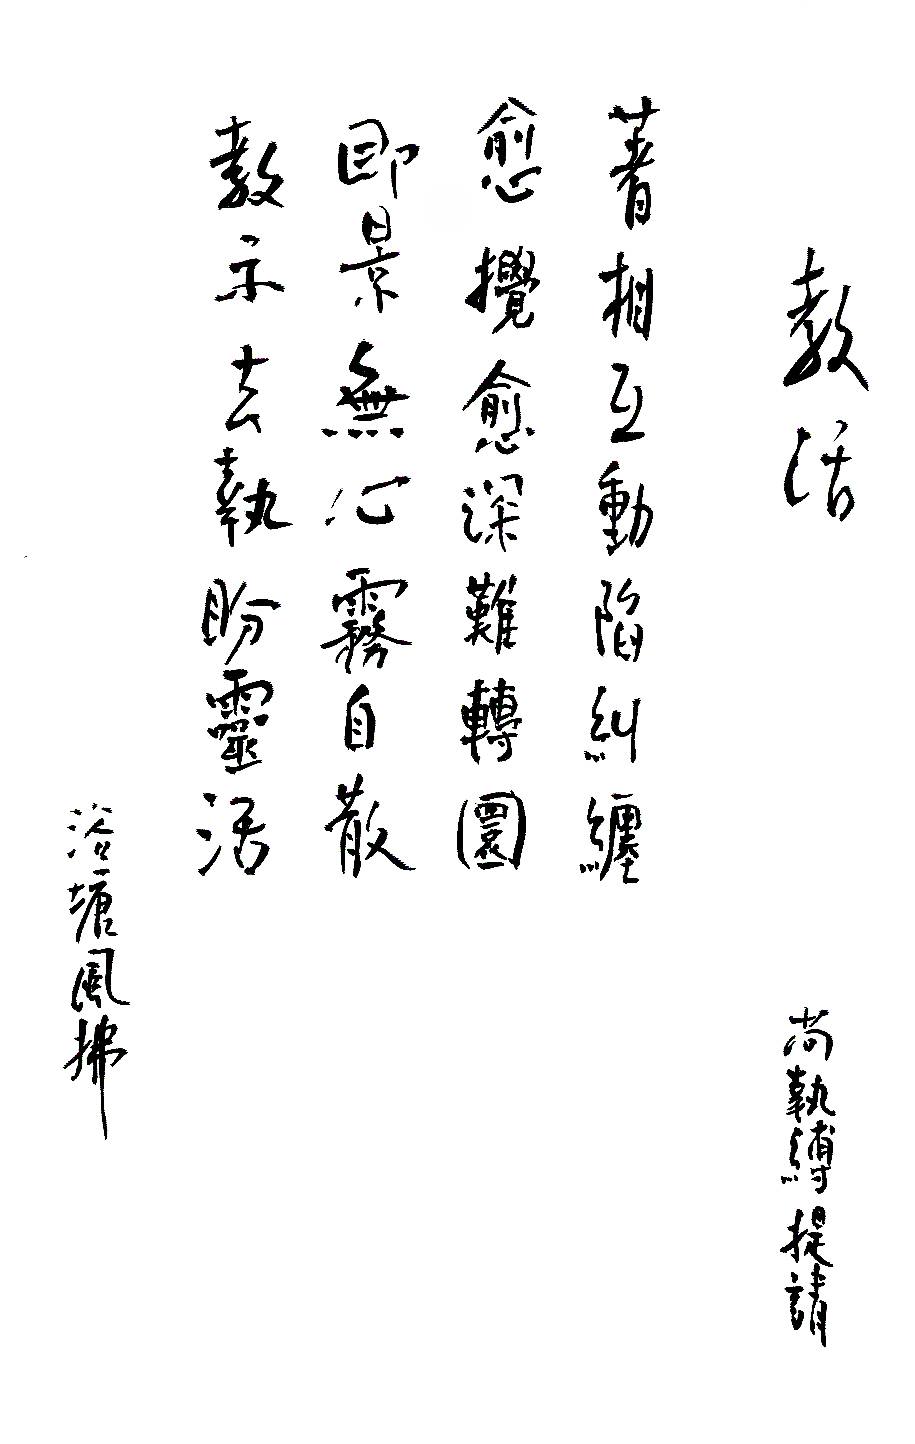 教活
尚執縛提請
著相互動陷糾纏
愈攪愈深難轉圜
即景無心霧自散
教示去執盼靈活
浴塘風拂